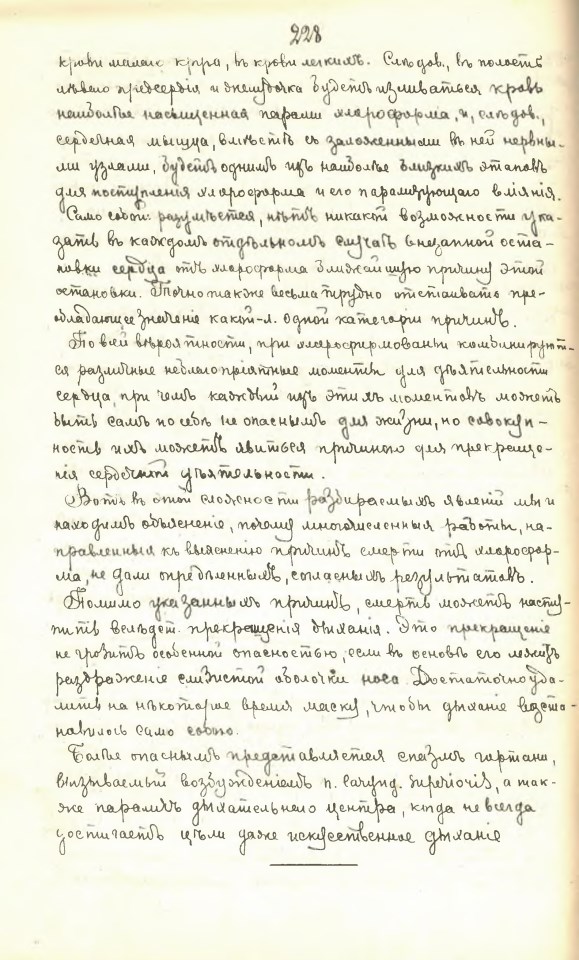 228
крови малаго круга, въ крови легкихъ. Слѣдов., въ полость
лѣваго предсердія и желудочка будетъ изливаться кровь
наиболѣе насыщенная парами хлороформа, и, слѣдов.,
сердечная мышца, вмѣстѣ съ заложенными въ ней нервны-
ми узлами, будетъ однимъ изъ наиболѣе близкихъ этаповъ
для поступленія хлороформа и его парализующаго вліянія.
Само собой разумѣется, нѣтъ никакой возможности ука-
зать въ каждомъ отдѣльномъ случаѣ внезапной оста-
новки сердца отъ хлороформа ближайшую причину этой
остановки. Точно также весьма трудно отстаивать пре-
обладающее значеніе какой-л. одной категоріи причинъ.
По всей вѣроятности, при хлороформованьи комбинируют-
ся различные неблагопріятные моменты для дѣятельности
сердца, при чемъ каждый изъ этихъ моментовъ можетъ
быть самъ по себѣ не опаснымъ для жизни, но совокуп-
ность ихъ можетъ явиться причиною для прекраще-
нія сердечной дѣятельности.
Вотъ въ этой сложности разбираемыхъ явленій мы и
находимъ объясненіе, почему многочисленныя работы, на-
правленныя къ выясненію причинъ смерти отъ хлорофор-
ма, не дали опредѣленныхъ, согласныхъ результатовъ.
Помимо указанныхъ причинъ, смерть можетъ насту-
пить вслѣдст. прекращенія дыханія. Это прекращеніе
не грозитъ особенной опасностью, если въ основѣ его лежитъ
раздраженіе слизистой оболочки носа. Достаточно уда-
лить на нѣкоторое время маску, чтобы дыханіе возста-
новилось само собою.
Болѣе опаснымъ представляется спазмъ гортани,
вызываемый возбужденіемъ n. laryng. superioris, а так-
же параличъ дыхательнаго центра, когда не всегда
достигаетъ цѣли даже искусственное дыханіе